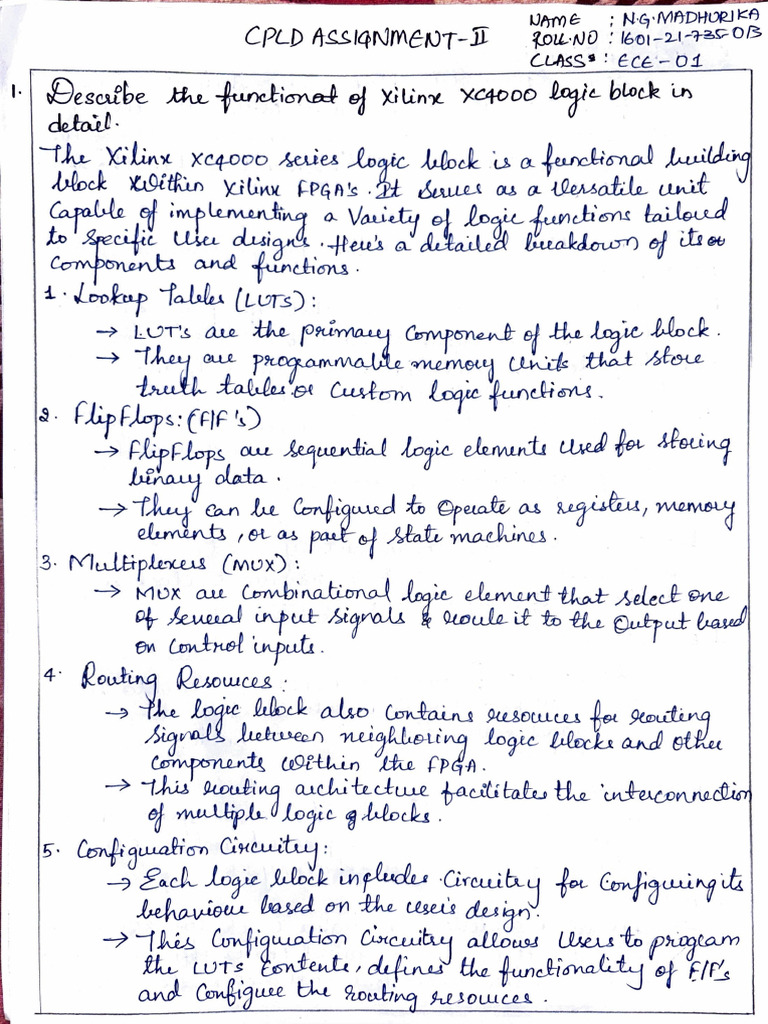 CPLD ASSIGNMENT-II
NAME : N.G.MADHURIKA
ROLL.NO : 1601-21-735-013
CLASS : ECE-01
1. Describe the functional of Xilinx XC4000 logic block in
detail.
The Xilinx XC4000 series logic block is a functional building
block within Xilinx FPGA's. It serves as a versatile unit
capable of implementing a variety of logic functions tailored
to specific user designs. Here's a detailed breakdown of its
components and functions.
1. Lookup Tables (LUTs):
→ LUT's are the primary component of the logic block.
→ They are programmable memory units that store
truth tables or custom logic functions.
2. FlipFlops: (F/F's)
→ FlipFlops are sequential logic elements used for storing
binary data.
→ They can be configured to operate as registers, memory
elements, or as part of state machines.
3. Multiplexers (MUX):
→ MUX are combinational logic element that select one
of several input signals & route it to the output based
on control inputs.
4. Routing Resources:
→ The logic block also contains resources for routing
signals between neighboring logic blocks and other
components within the FPGA.
→ This routing architecture facilitates the interconnection
of multiple logic blocks.
5. Configuration Circuitry:
→ Each logic block includes circuitry for configuring its
behaviour based on the user's design.
→ This configuration circuitry allows users to program
the LUTs contents, defines the functionality of F/F's
and configure the routing resources.